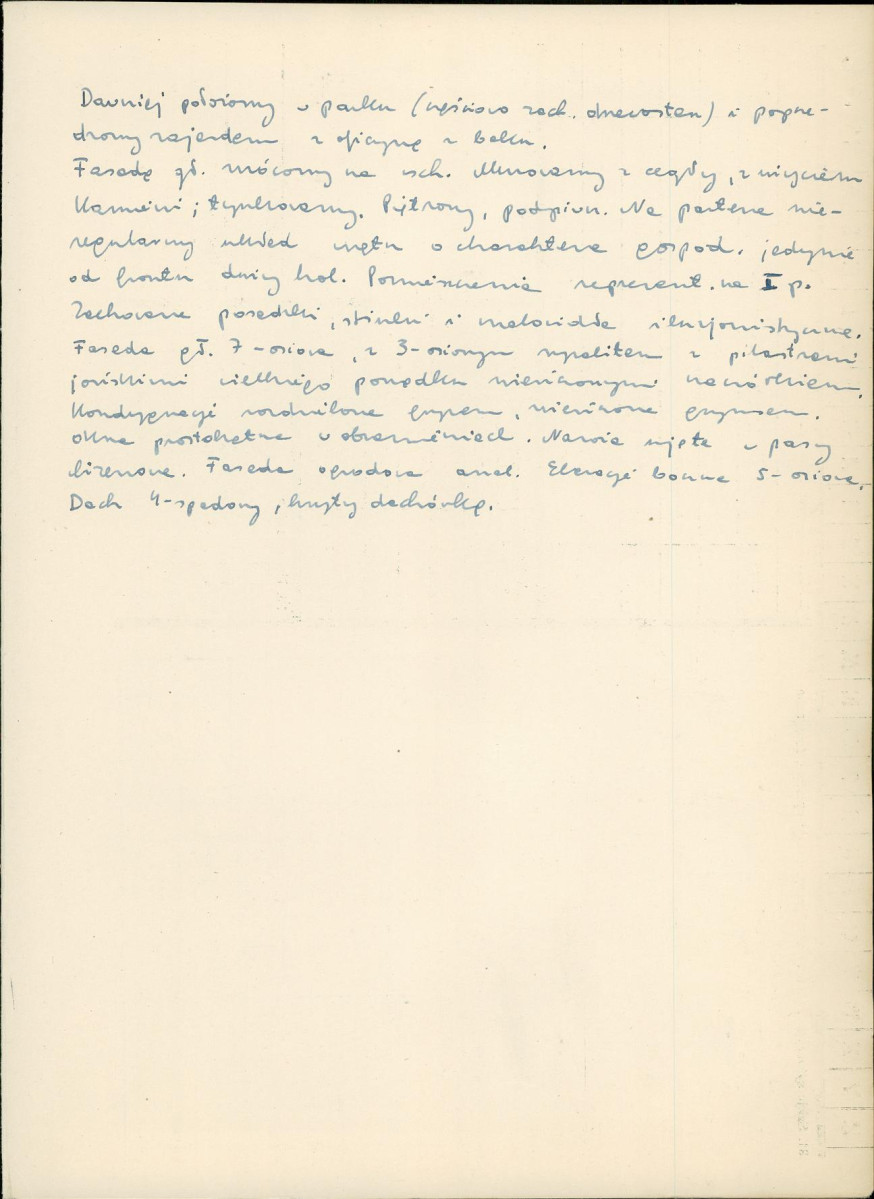 Dawniej położony w parku (częściowo zach. drzewostan) i poprze-
dzony zajazdem z oficyną z boku.
Fasadą gł. zwrócony na wsch. Murowany z cegły, z użyciem
kamieni; tynkowany. Piętrowy, podpiwn. Na parterze nie-
regularny układ wnętrz o charakterze gospod. jedynie
od frontu duży hol. Pomieszczenia reprezent. na I p.
Zachowane posadzki, stiuki i malowidła iluzjonistyczne.
Fasada gł. 7-osiowa, z 3-osiowym ryzalitem z pilastrami
jońskimi wielkiego porządku zwieńczonymi naczółkiem.
Kondygnacje rozdzielone gzymsem, zwieńczone gzymsem.
Okna prostokątne w obramieniach. Naroża ujęte w pasy
lizenowe. Fasada ogrodowa anal. Elewacje boczne 5-osiowe.
Dach 4-spadowy, kryty dachówką.